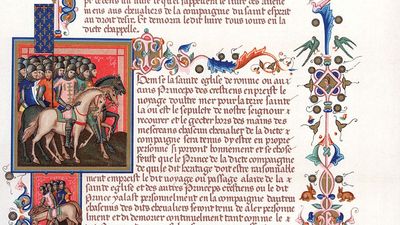 du livre et quel sappellent le livre des avene
mens aus chevaliers de la compaignie du saint esprit
au droit desir. Et demorra le dit livre tous iours en la
dicte chappelle.
tem se la sainte eglise de romme ou au
Princeps des crestiens enpreist le
voyage doultre mer pour la terre sainte
La ou est le sepulcre de nostre seigneur
recourer et gecter hors des mains des
mescreans chascun chevalier de la dicte
compagnie sera tenus dy estre en propre
personne si porront bonnement et se chose
feust que le Prince de la dicte compagnie
de qui le dit doit estre raisonnable
ment empreist le dit voyage ou passage
sainte eglise et des autres Princeps crestiens ou le dit
Prince y alast personnelment en la compagnie dautrui
chascuns des dits chevaliers seront tenu de aler personnel
ment et demorer continuelment tant comme le